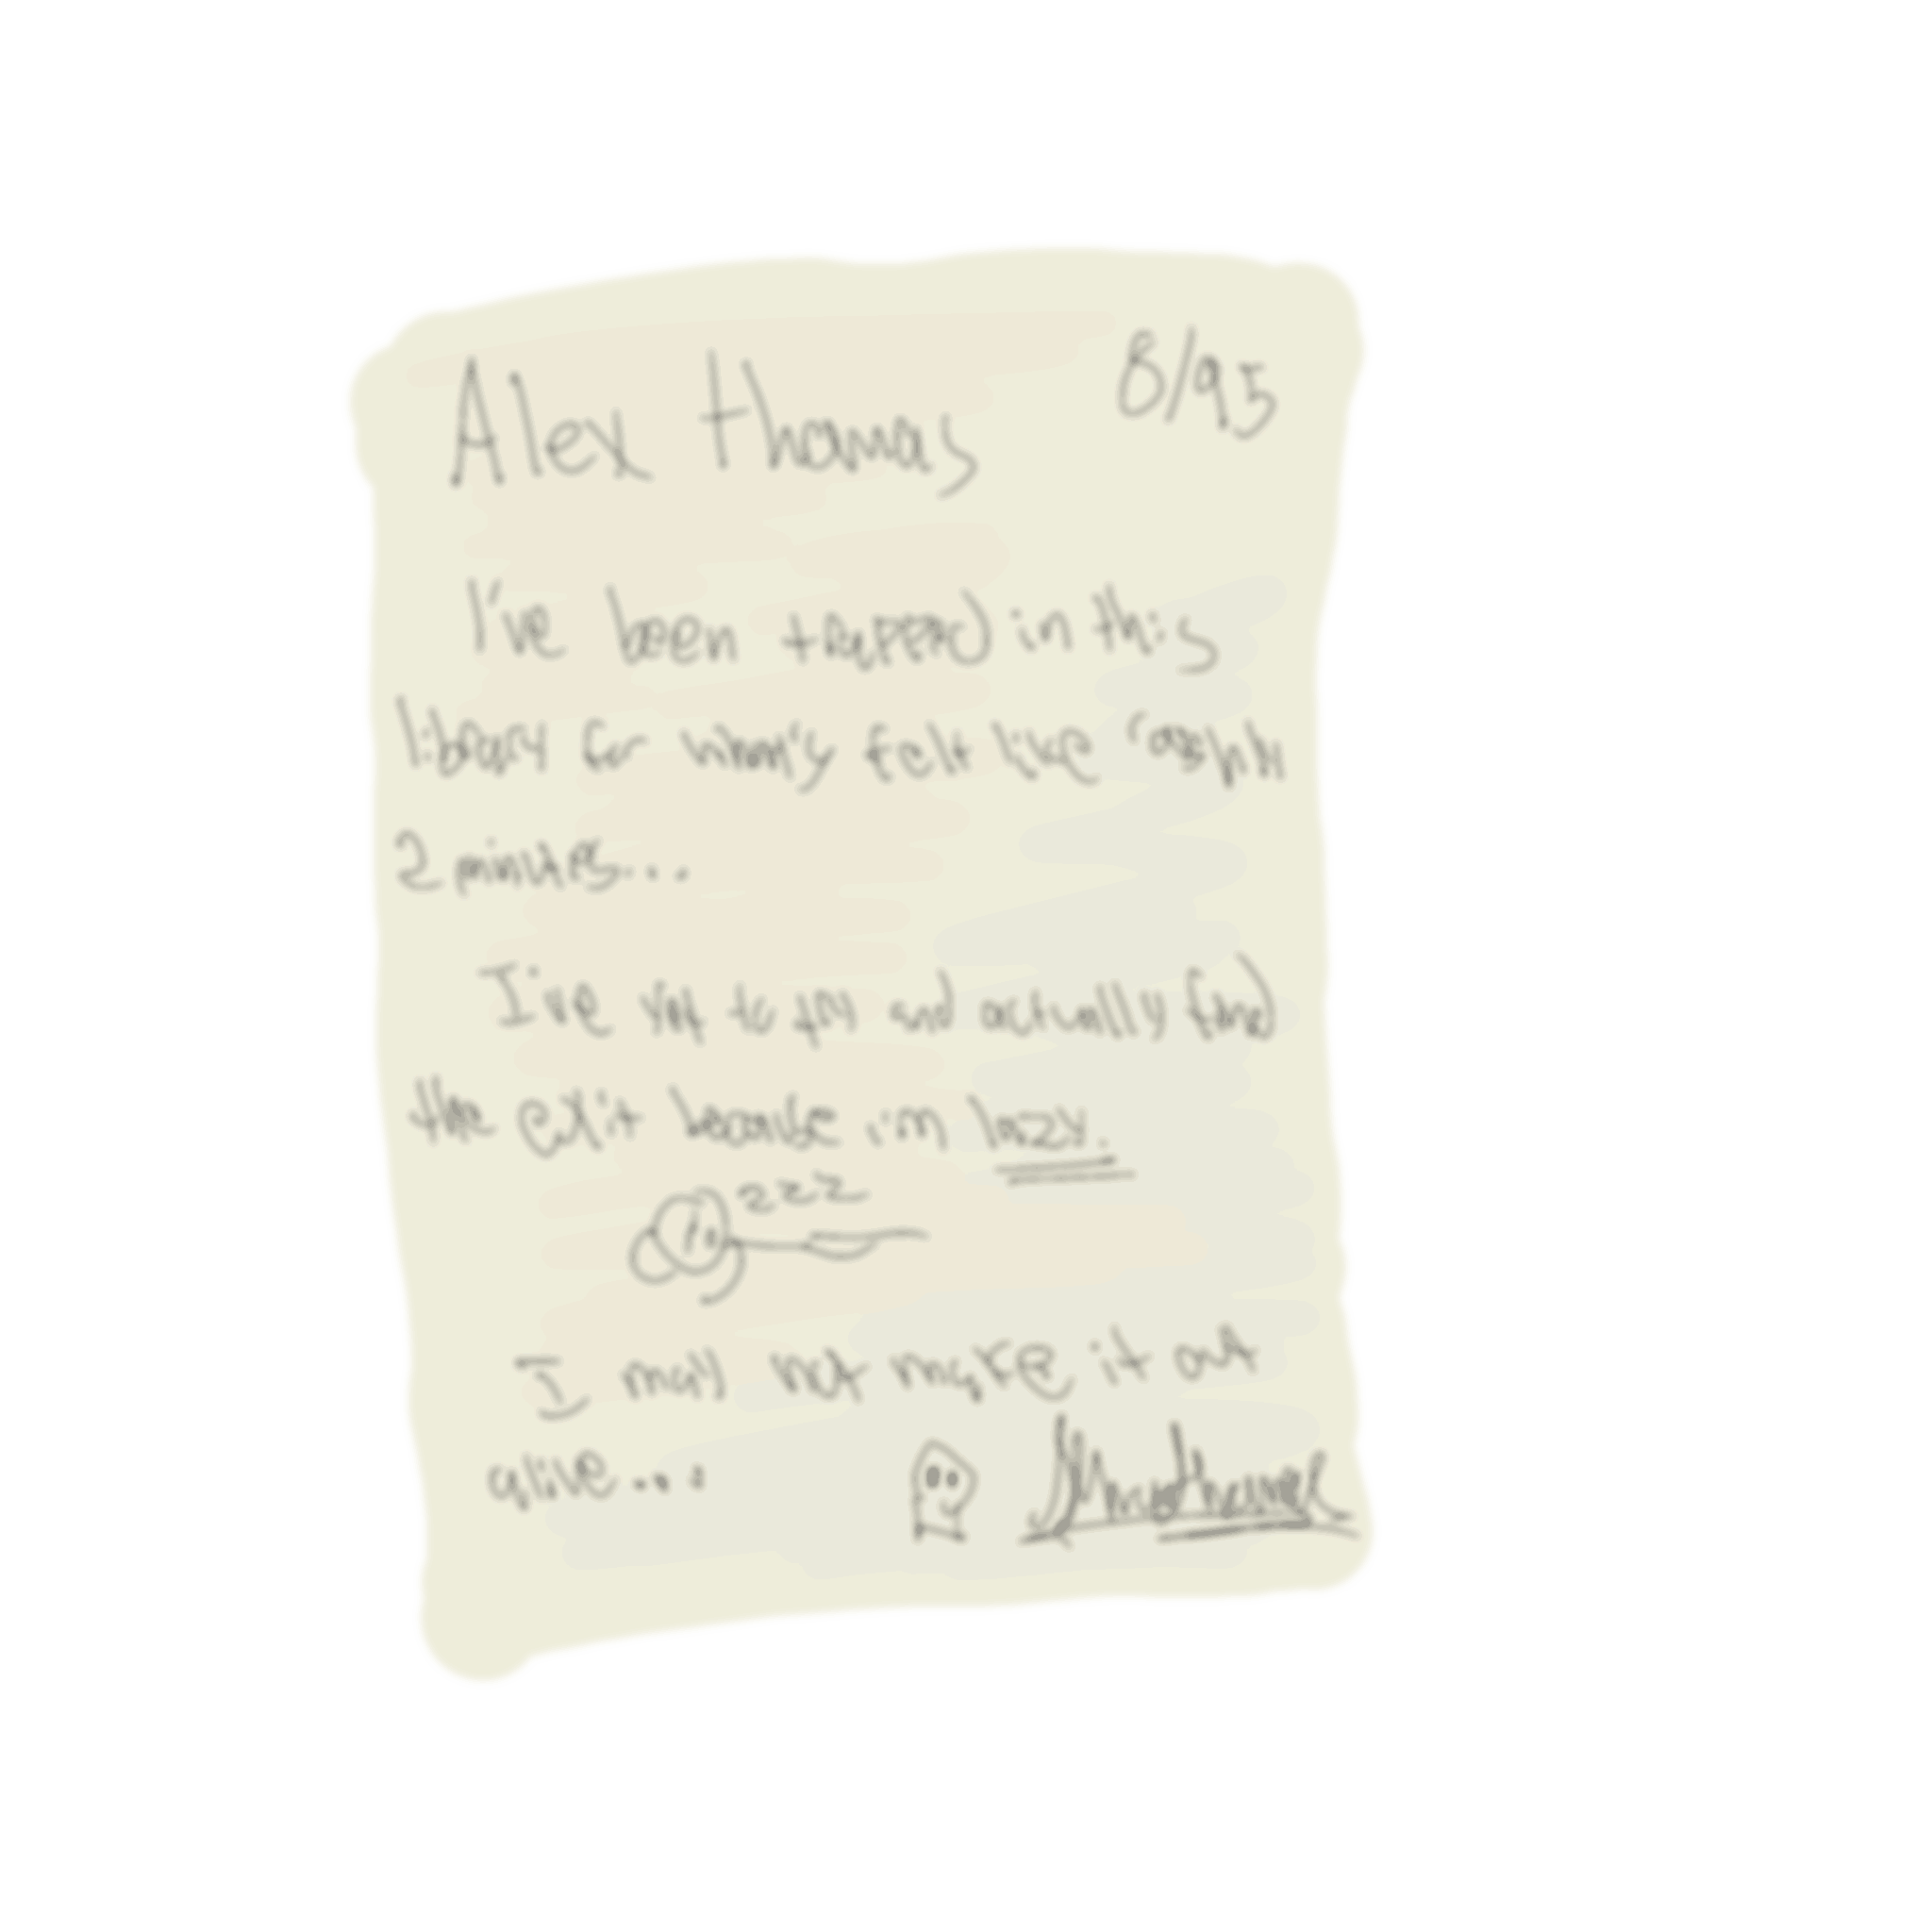 Alex Thomas 8/95
I've been trapped in this
library for what's felt like roughly
2 minutes...
I've yet to try and actually find
the exit because i'm lazy.
zzz
I may not make it out
alive...